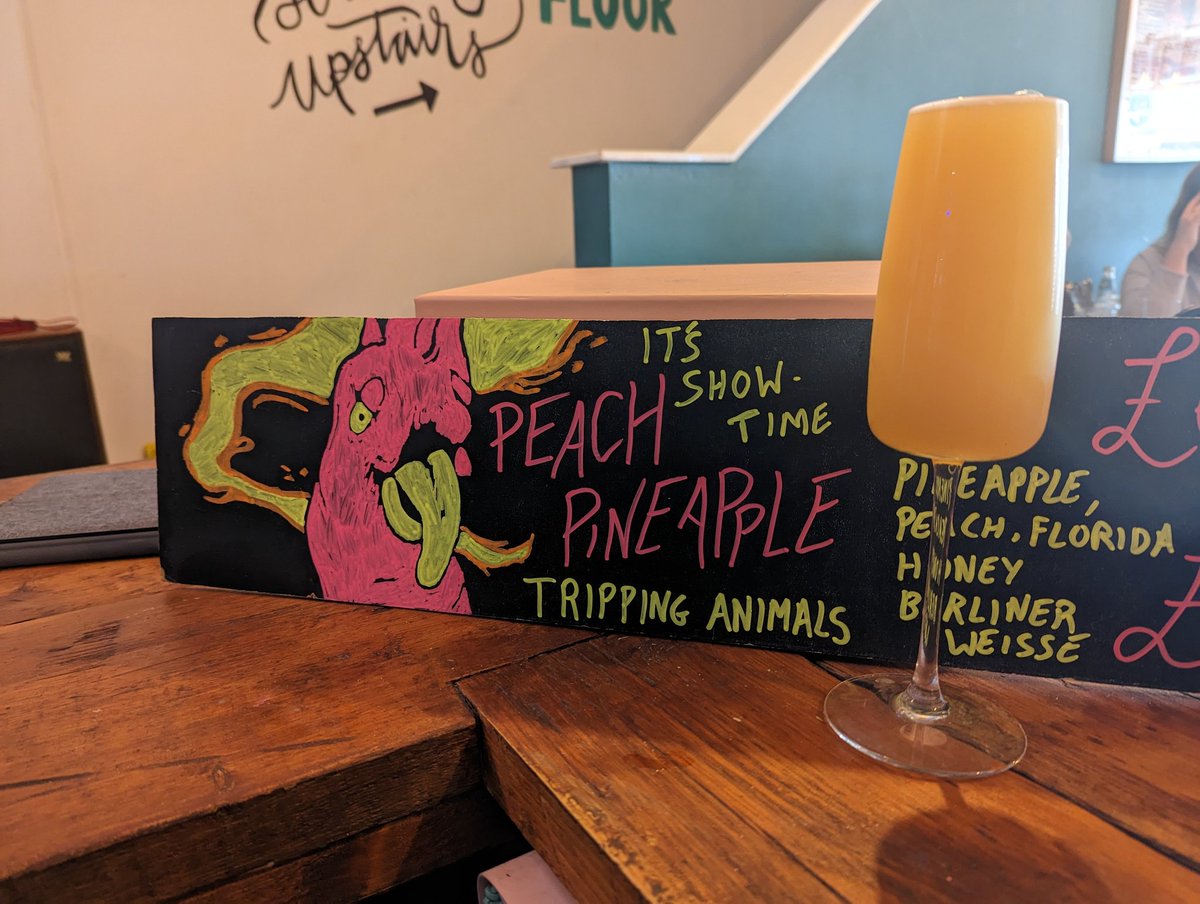 Upstairs
FLOOR
IT'S
SHOW-
TIME
PEACH
PINEAPPLE
TRIPPING ANIMALS
PINEAPPLE,
PEACH, FLORIDA
HONEY
BERLINER
WEISSE
£
£